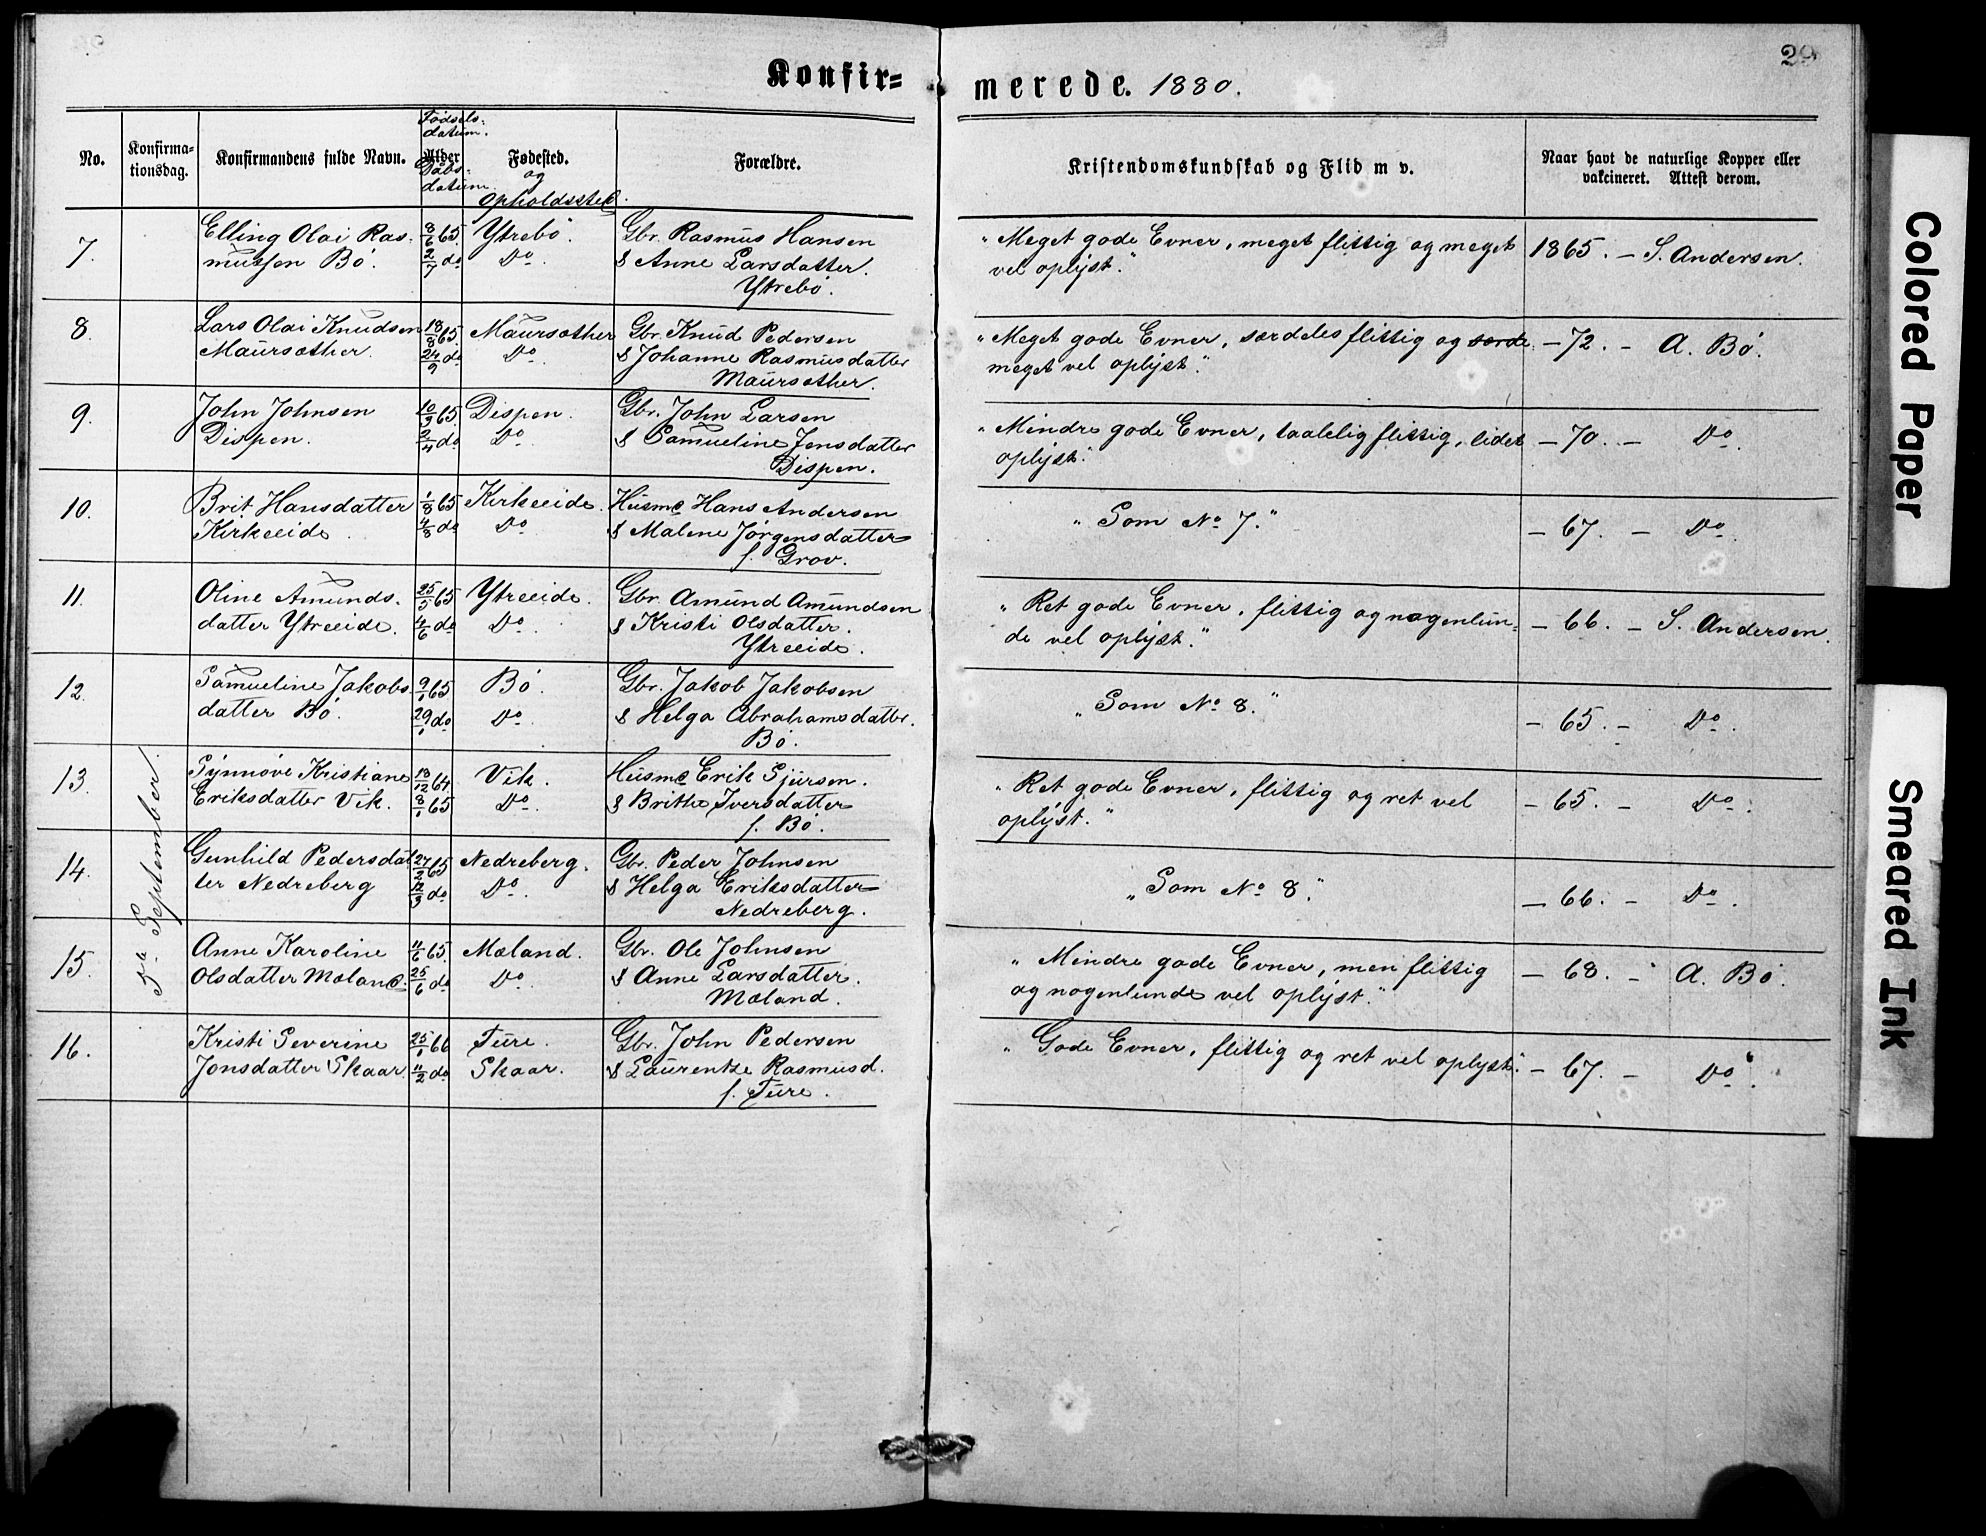 Konfir= merede. 1880.
29
No.
Konfirma-
tionsdag.
Konfirmandens fulde Navn.
Fødsels-
datum.
Alder
Dåbs-
datum.
Fødested.
og
Opholdssted.
Forældre.
Kristendomskundskab og Flid m v.
Naar havt de naturlige Kopper eller
vakcineret. Attest derom.
5te September.
7. Elling Olai Ras- 8/6 65. Ytrebö. Gbr. Rasmus Hansen
mussen Bö. 2/7 do Do. & Anne Larsdatter.
Ytrebö.
"Meget gode Evner, meget flittig og meget 1865. – S. Andersen.
vel oplyst."
8. Lars Olai Knudsen 18/8 65. Maursæther Gbr. Knud Pedersen
Maursæther. 24/9 do Do. & Johanne Rasmusdatter
Maursæther.
"Meget gode Evner, særdeles flittig og særde – 72. – A. Bö.
meget vel oplyst."
9. John Johnsen 10/3 65. Dispen. Gbr. John Larsen
Dispen. 2/4 do Do. & Samueline Jensdatter
Dispen.
"Mindre gode Evner, taalelig flittig, lidet – 70. – Do.
oplyst."
10. Brit Hansdatter 1/8 65 Kirkeeide. Husmd Hans Andersen
Kirkeeide. 4/8 do Do. & Malene Jørgensdatter
f. Grov.
"Som No 7." – 67. – Do.
11. Oline Amunds- 25/5 65 Ytreeide. Gbr. Amund Amundsen
datter Ytreeide. 4/6 do Do. & Kristi Olsdatter.
Ytreeide.
"Ret gode Evner, flittig og nogenlun- – 66. – S. Andersen.
de vel oplyst."
12. Samueline Jakobs- 9/1 65 Bö. Gbr. Jakob Jakobsen
datter Bö. 29/1 do Do. & Helga Abrahamsdatter.
Bö.
"Som No 8." – 65. – Do.
13. Synnöve Kristiane 18/12 64. Vik. Husmd Erik Sjursen.
Eriksdatter Vik. 8/1 65 Do. & Brithe Iversdatter
f. Bö.
"Ret gode Evner, flittig og ret vel – 65. – Do.
oplyst."
14. Gunhild Pedersdat- 27/2 65 Nedreberg. Gbr. Peder Johnsen
ter Nedreberg 12/3 do Do. & Helga Eriksdatter
Nedreberg.
"Som No 8." – 66. – Do.
15. Anne Karoline 11/6 65. Mæland. Gbr. Ole Johnsen
Olsdatter Mæland. 25/6 do Do. & Anne Larsdatter.
Mæland.
"Mindre gode Evner, men flittig – 68. – A. Bö.
og nogenlunde vel oplyst."
16. Kristi Severine 25/1 66 Ture. Gbr. John Pedersen
Jonsdatter Skaar. 11/2 do Skaar. & Laurentse Rasmusd.
f. Ture.
"Gode Evner, flittig og ret vel oplyst." – 67. – Do.
Colored Paper
Smeared Ink